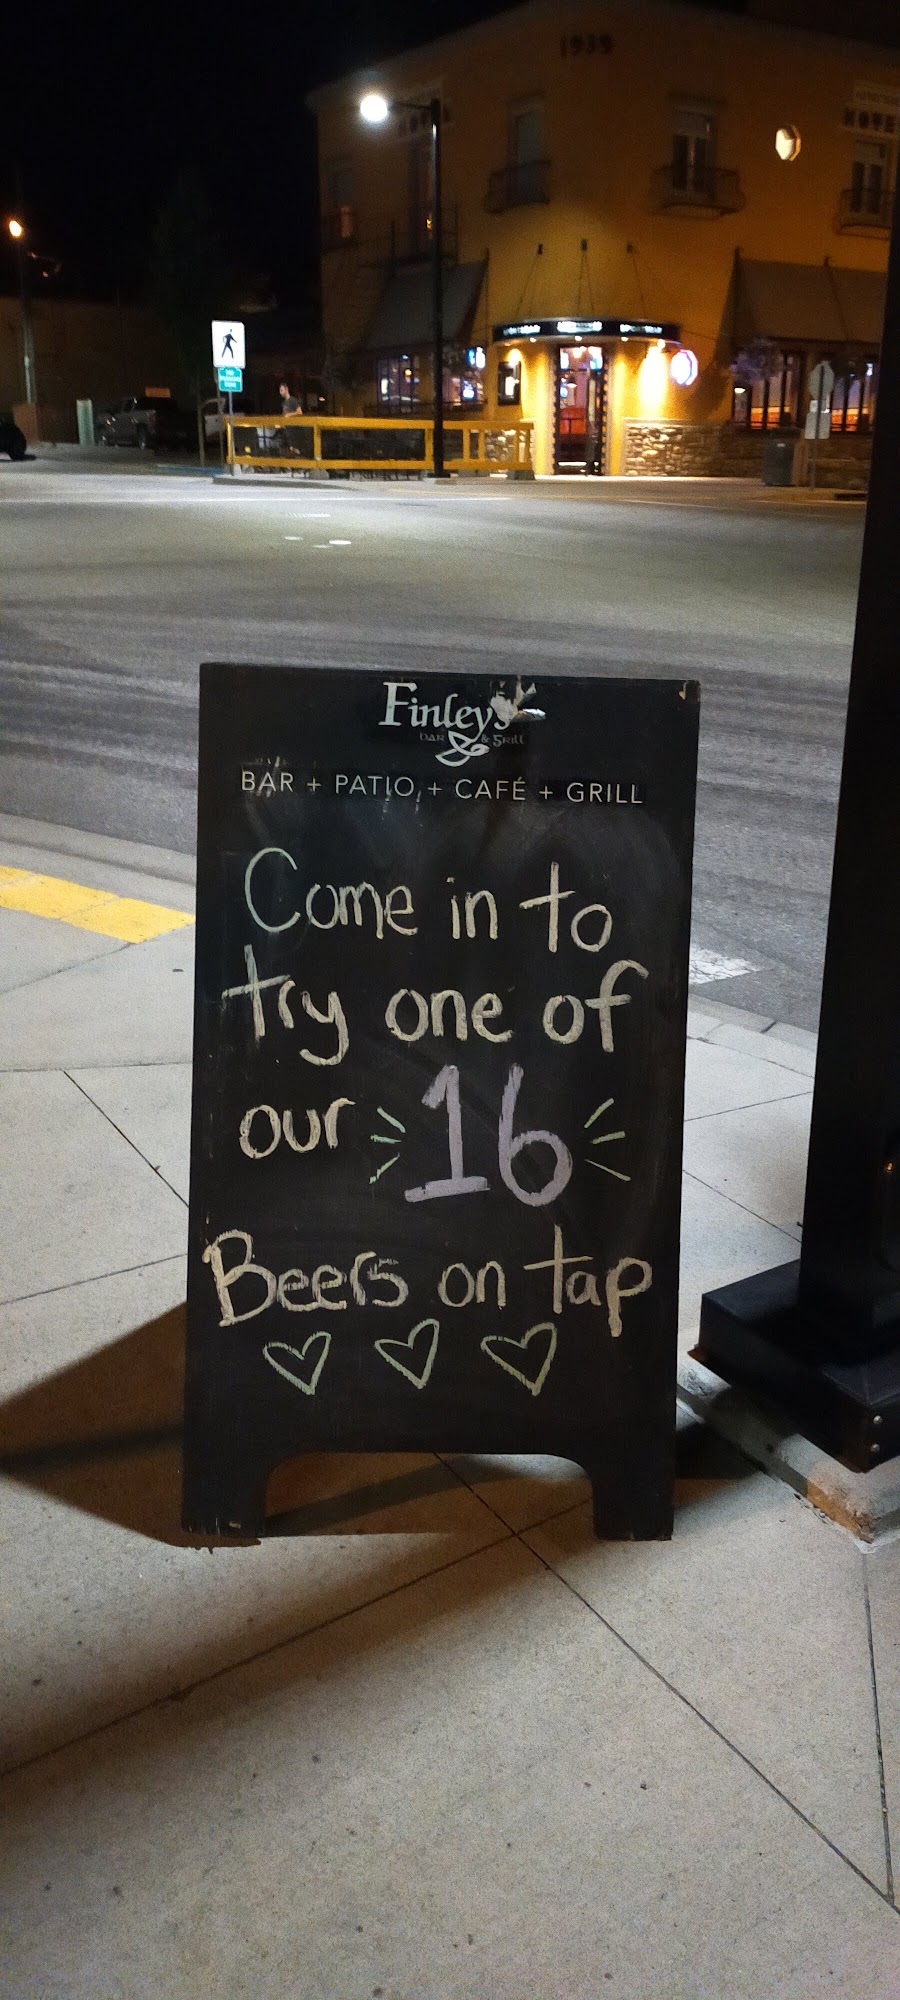 1939
HOTEL
Finley's
BAR & GRILL
BAR + PATIO + CAFÉ + GRILL
Come in to
try one of
our 16
Beers on tap